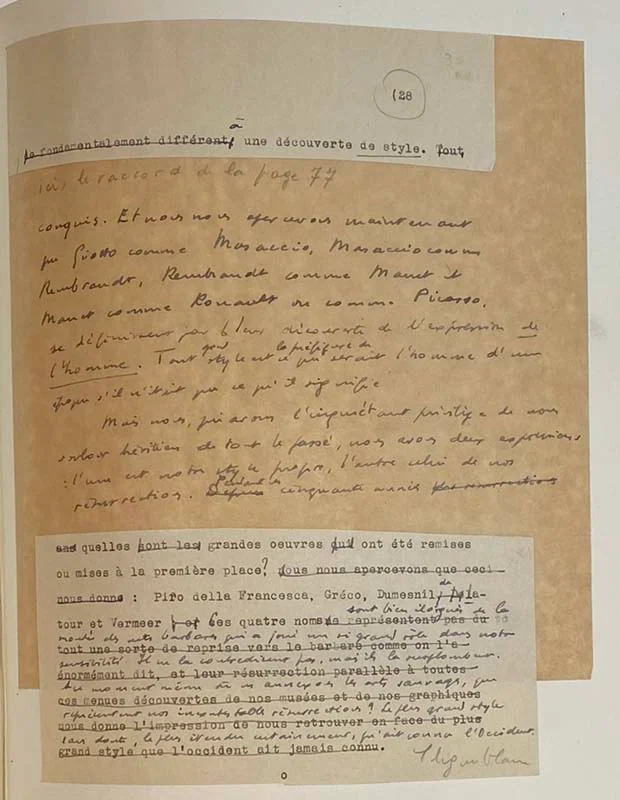 (28
à
le fondamentalement différent, une découverte de style. Tout
ici le raccord de la page 77
conquis. Et nous nous apercevons maintenant
que Giotto comme Masaccio, Masaccio comme
Rembrandt, Rembrandt comme Manet et
Manet comme Rouault ou comme Picasso,
se définissent par leur découverte de l'expression de
grand la préfigure de
l'homme. Tout style est ce qui serait l'homme d'une
époque s'il n'était pas ce qu'il signifie
Mais nous, qui avons l'inquiétant privilège de nous
savoir héritiers de tout le passé, nous avons deux expressions
: l'une est notre style propre, l'autre celui de nos
Pendant ces
résurrections. Depuis cinquante années des résurrections
ans quelles sont les grandes oeuvres qui ont été remises
ou mises à la première place? Nous nous apercevons que ceci
de
nous donne : Piero della Francesca, Gréco, Dumesnil, La-
sont bien éloignés de la
tour et Vermeer, et Ces quatre noms ne représentent pas du
monde des arts barbares qui a joué un si grand rôle dans notre
tout une sorte de reprise vers le barbare comme on l'a
sensibilité. Ils ne la contredisent pas, mais ils la surplombent.
énormément dit, et leur résurrection parallèle à toutes
Au moment même où nous annexons les arts sauvages, que
ces menues découvertes de nos musées et de nos graphiques
représentent nos incontestables résurrections? Le plus grand style
nous donne l'impression de nous retrouver en face du plus
sans doute, le plus étendu certainement, qu'ait connu l'Occident.
grand style que l'occident ait jamais connu.
1 ligne blanc